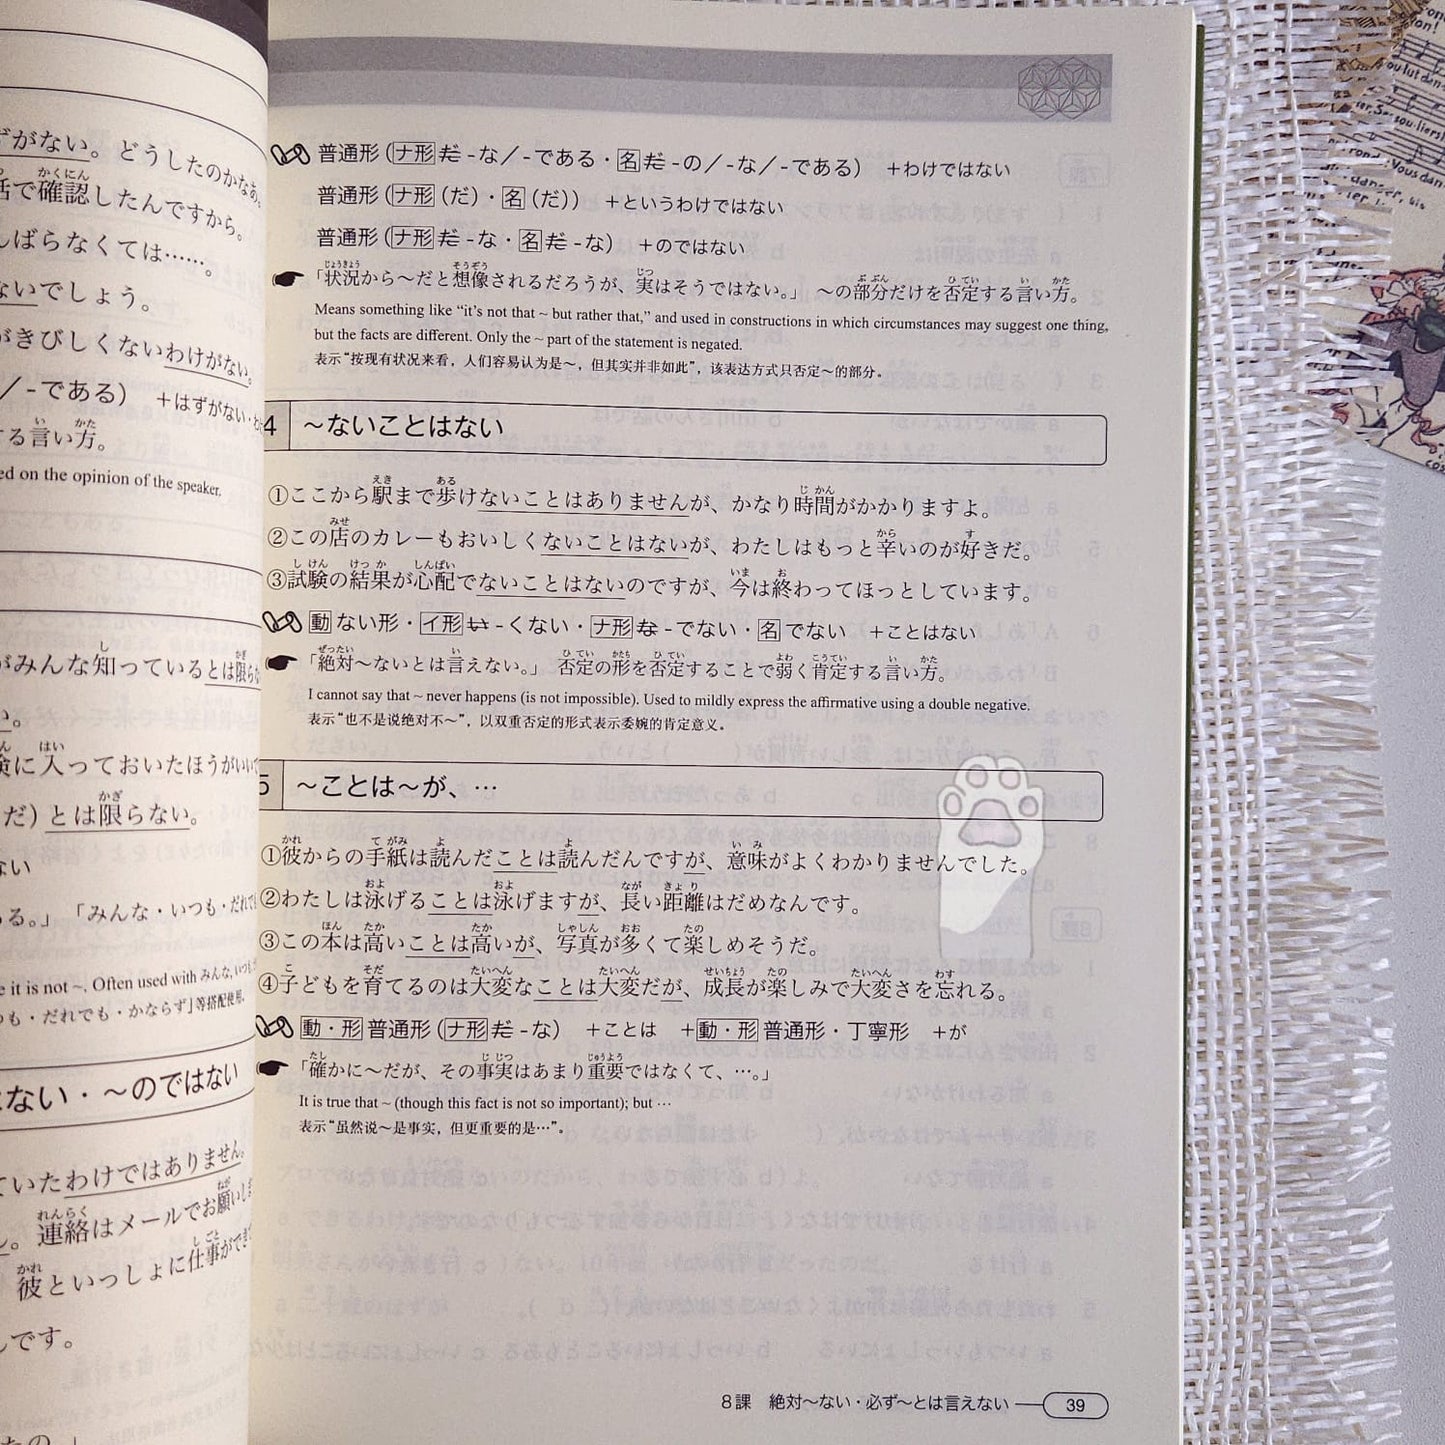 ずがない。どうしたのかなあ。
話で確認したんですから。
んばらなくては……。
ないでしょう。
がきびしくないわけがない。
／-である） +はずがない・わ
する言い方。
ed on the opinion of the speaker.
がみんな知っているとは限らな
い。
険に入っておいたほうがいい
だ）とは限らない。
ない
ある。」「みんな・いつも・だれでも
e it is not ~, Often used with みんな, いつも
つも・だれでも・かならず」等搭配使用.
はない・～のではない
ていたわけではありません。
ん。連絡はメールでお願いしま
彼といっしょに仕事ができて
んです。
たの。」
普通形（ナ形だ -な／-である・名だ -の／-な／-である） +わけではない
普通形（ナ形（だ）・名（だ）） +というわけではない
普通形（ナ形だ -な・名だ -な） +のではない
「状況から～だと想像されるだろうが、実はそうではない。」 ～の部分だけを否定する言い方。
Means something like “it’s not that ~ but rather that,” and used in constructions in which circumstances may suggest one thing,
but the facts are different. Only the ~ part of the statement is negated.
表示“按现有状况来看，人们容易认为是～，但其实并非如此”，该表达方式只否定～的部分。
4 ～ないことはない
①ここから駅まで歩けないことはありませんが、かなり時間がかかりますよ。
②この店のカレーもおいしくないことはないが、わたしはもっと辛いのが好きだ。
③試験の結果が心配でないことはないのですが、今は終わってほっとしています。
動ない形・イ形い -くない・ナ形な -でない・名でない +ことはない
「絶対～ないとは言えない。」 否定の形を否定することで弱く肯定する言い方。
I cannot say that ~ never happens (is not impossible). Used to mildly express the affirmative using a double negative.
表示“也不是说绝对不～”，以双重否定的形式表示委婉的肯定意义。
5 ～ことは～が、…
①彼からの手紙は読んだことは読んだんですが、意味がよくわかりませんでした。
②わたしは泳げることは泳げますが、長い距離はだめなんです。
③この本は高いことは高いが、写真が多くて楽しめそうだ。
④子どもを育てるのは大変なことは大変だが、成長が楽しみで大変さを忘れる。
動・形普通形（ナ形だ -な） +ことは +動・形普通形・丁寧形 +が
「確かに～だが、その事実はあまり重要ではなくて、…。」
It is true that ~ (though this fact is not so important); but …
表示“虽然说～是事实，但更重要的是…”。
8課 絶対～ない・必ず～とは言えない 39